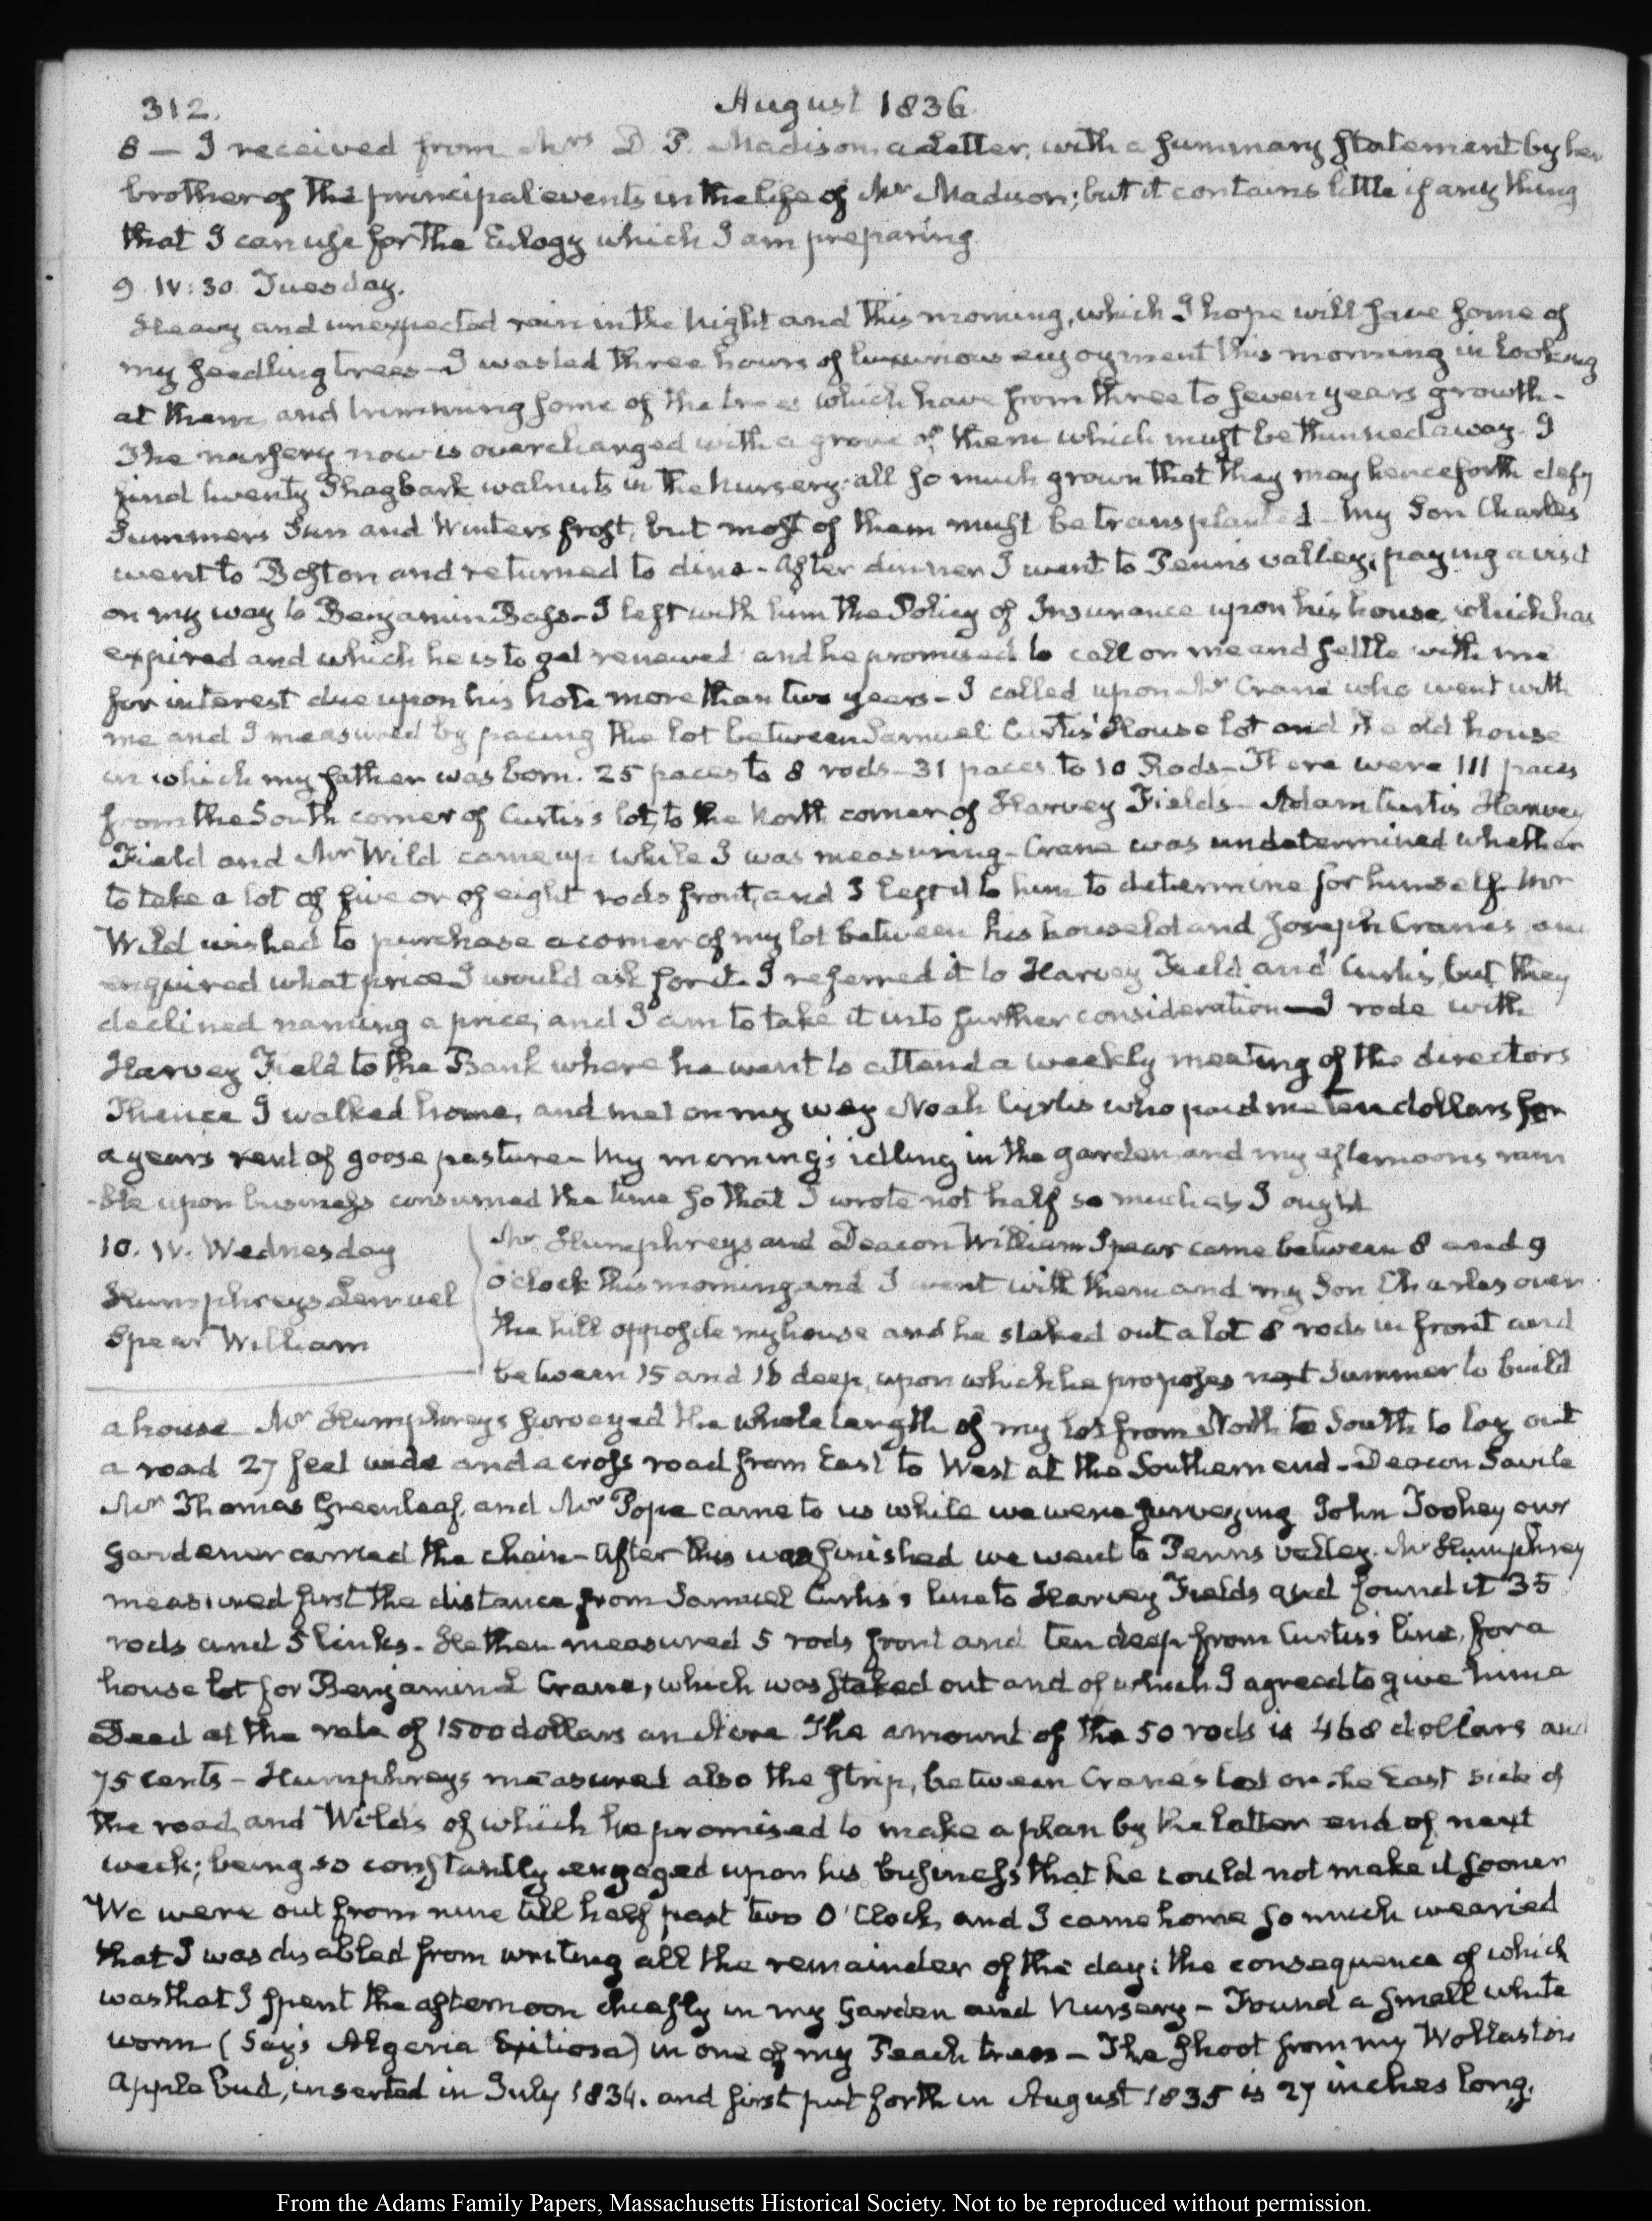 312.
August 1836
8 — I received from Mrs D. P. Madison a Letter, with a summary statement by her
brother of the principal events in the life of Mr Madison; but it contains little if any thing
that I can use for the Eulogy which I am preparing
9. IV:30. Tuesday.
Heavy and unexpected rain in the Night and this morning, which I hope will save some of
my seedling trees — I wasted three hours of luxurious enjoyment this morning in looking
at them, and trimming some of the trees which have from three to seven years growth —
The nursery now is overcharged with a grove of them which must be thinned away. I
find twenty Shagbark walnuts in the Nursery; all so much grown that they may henceforth defy
Summer's Sun and Winters frost, but most of them must be transplanted — My Son Charles
went to Boston and returned to dine — After dinner I went to Penn's valley; paying a visit
on my way to Benjamin Bass — I left with him the Policy of Insurance upon his house, which has
expired and which he is to get renewed and he promised to call on me and settle with me
for interest due upon his Note more than two years — I called upon Mr Crane who went with
me and I measured by pacing the lot between Samuel Curtis' House lot and the old house
in which my father was born. 25 paces to 8 rods — 31 paces to 10 Rods — There were 111 paces
from the South corner of Curtis's lot, to the North corner of Harvey Fields — Adam Curtis Harvey
Field and Mr Wild came up while I was measuring — Crane was undetermined whether
to take a lot of five or of eight rods front, and I left it to him to determine for himself. Mr
Wild wished to purchase a corner of my lot between his house lot and Joseph Crane's and
enquired what price I would ask for it. I referred it to Harvey Field and Curtis, but they
declined naming a price, and I am to take it into further consideration — I rode with
Harvey Field to the Bank where he went to attend a weekly meeting of the directors
Thence I walked home, and met on my way Noah Curtis who paid me ten dollars for
a years rent of goose pasture — My morning's idling in the garden and my afternoons ram
-ble upon business consumed the time so that I wrote not half so much as I ought
10. IV. Wednesday
Humphreys Lemuel
Spear William
Mr Humphreys and Deacon William Spear came between 8 and 9
o'clock this morning and I went with them and my Son Charles over
the hill opposite my house and he staked out a lot 8 rods in front and
between 15 and 16 deep, upon which he proposes next Summer to build
a house — Mr Humphreys surveyed the whole length of my lot from North to South to lay out
a road 27 feet wide and a cross road from East to West at the Southern end — Deacon Savile
Mr Thomas Greenleaf, and Mr Pope came to us while we were surveying. John Toohey our
Gardener carried the chain — After this was finished we went to Penns valley. Mr Humphrey
measured first the distance from Samuel Curtis's line to Harvey Fields and found it 35
rods and 5 links — He then measured 5 rods front and ten deep from Curtis's line, for a
house lot for Benjamin L Crane, which was staked out and of which I agreed to give him a
Deed at the rate of 1500 dollars an Acre. The amount of the 50 rods is 468 dollars and
75 cents — Humphreys measured also the strip, between Crane's lot on the East side of
the road, and Wild's of which he promised to make a plan by the latter end of next
week; being so constantly engaged upon his business that he could not make it sooner
We were out from nine till half past two O'Clock, and I came home so much wearied
that I was disabled from writing all the remainder of the day; the consequence of which
was that I spent the afternoon chiefly in my Garden and Nursery — Found a small white
worm (Say's Algeria Exitiosa) in one of my Peach trees — The shoot from my Wollaston
apple bud, inserted in July 1834. and first put forth in August 1835 is 27 inches long.
From the Adams Family Papers, Massachusetts Historical Society. Not to be reproduced without permission.